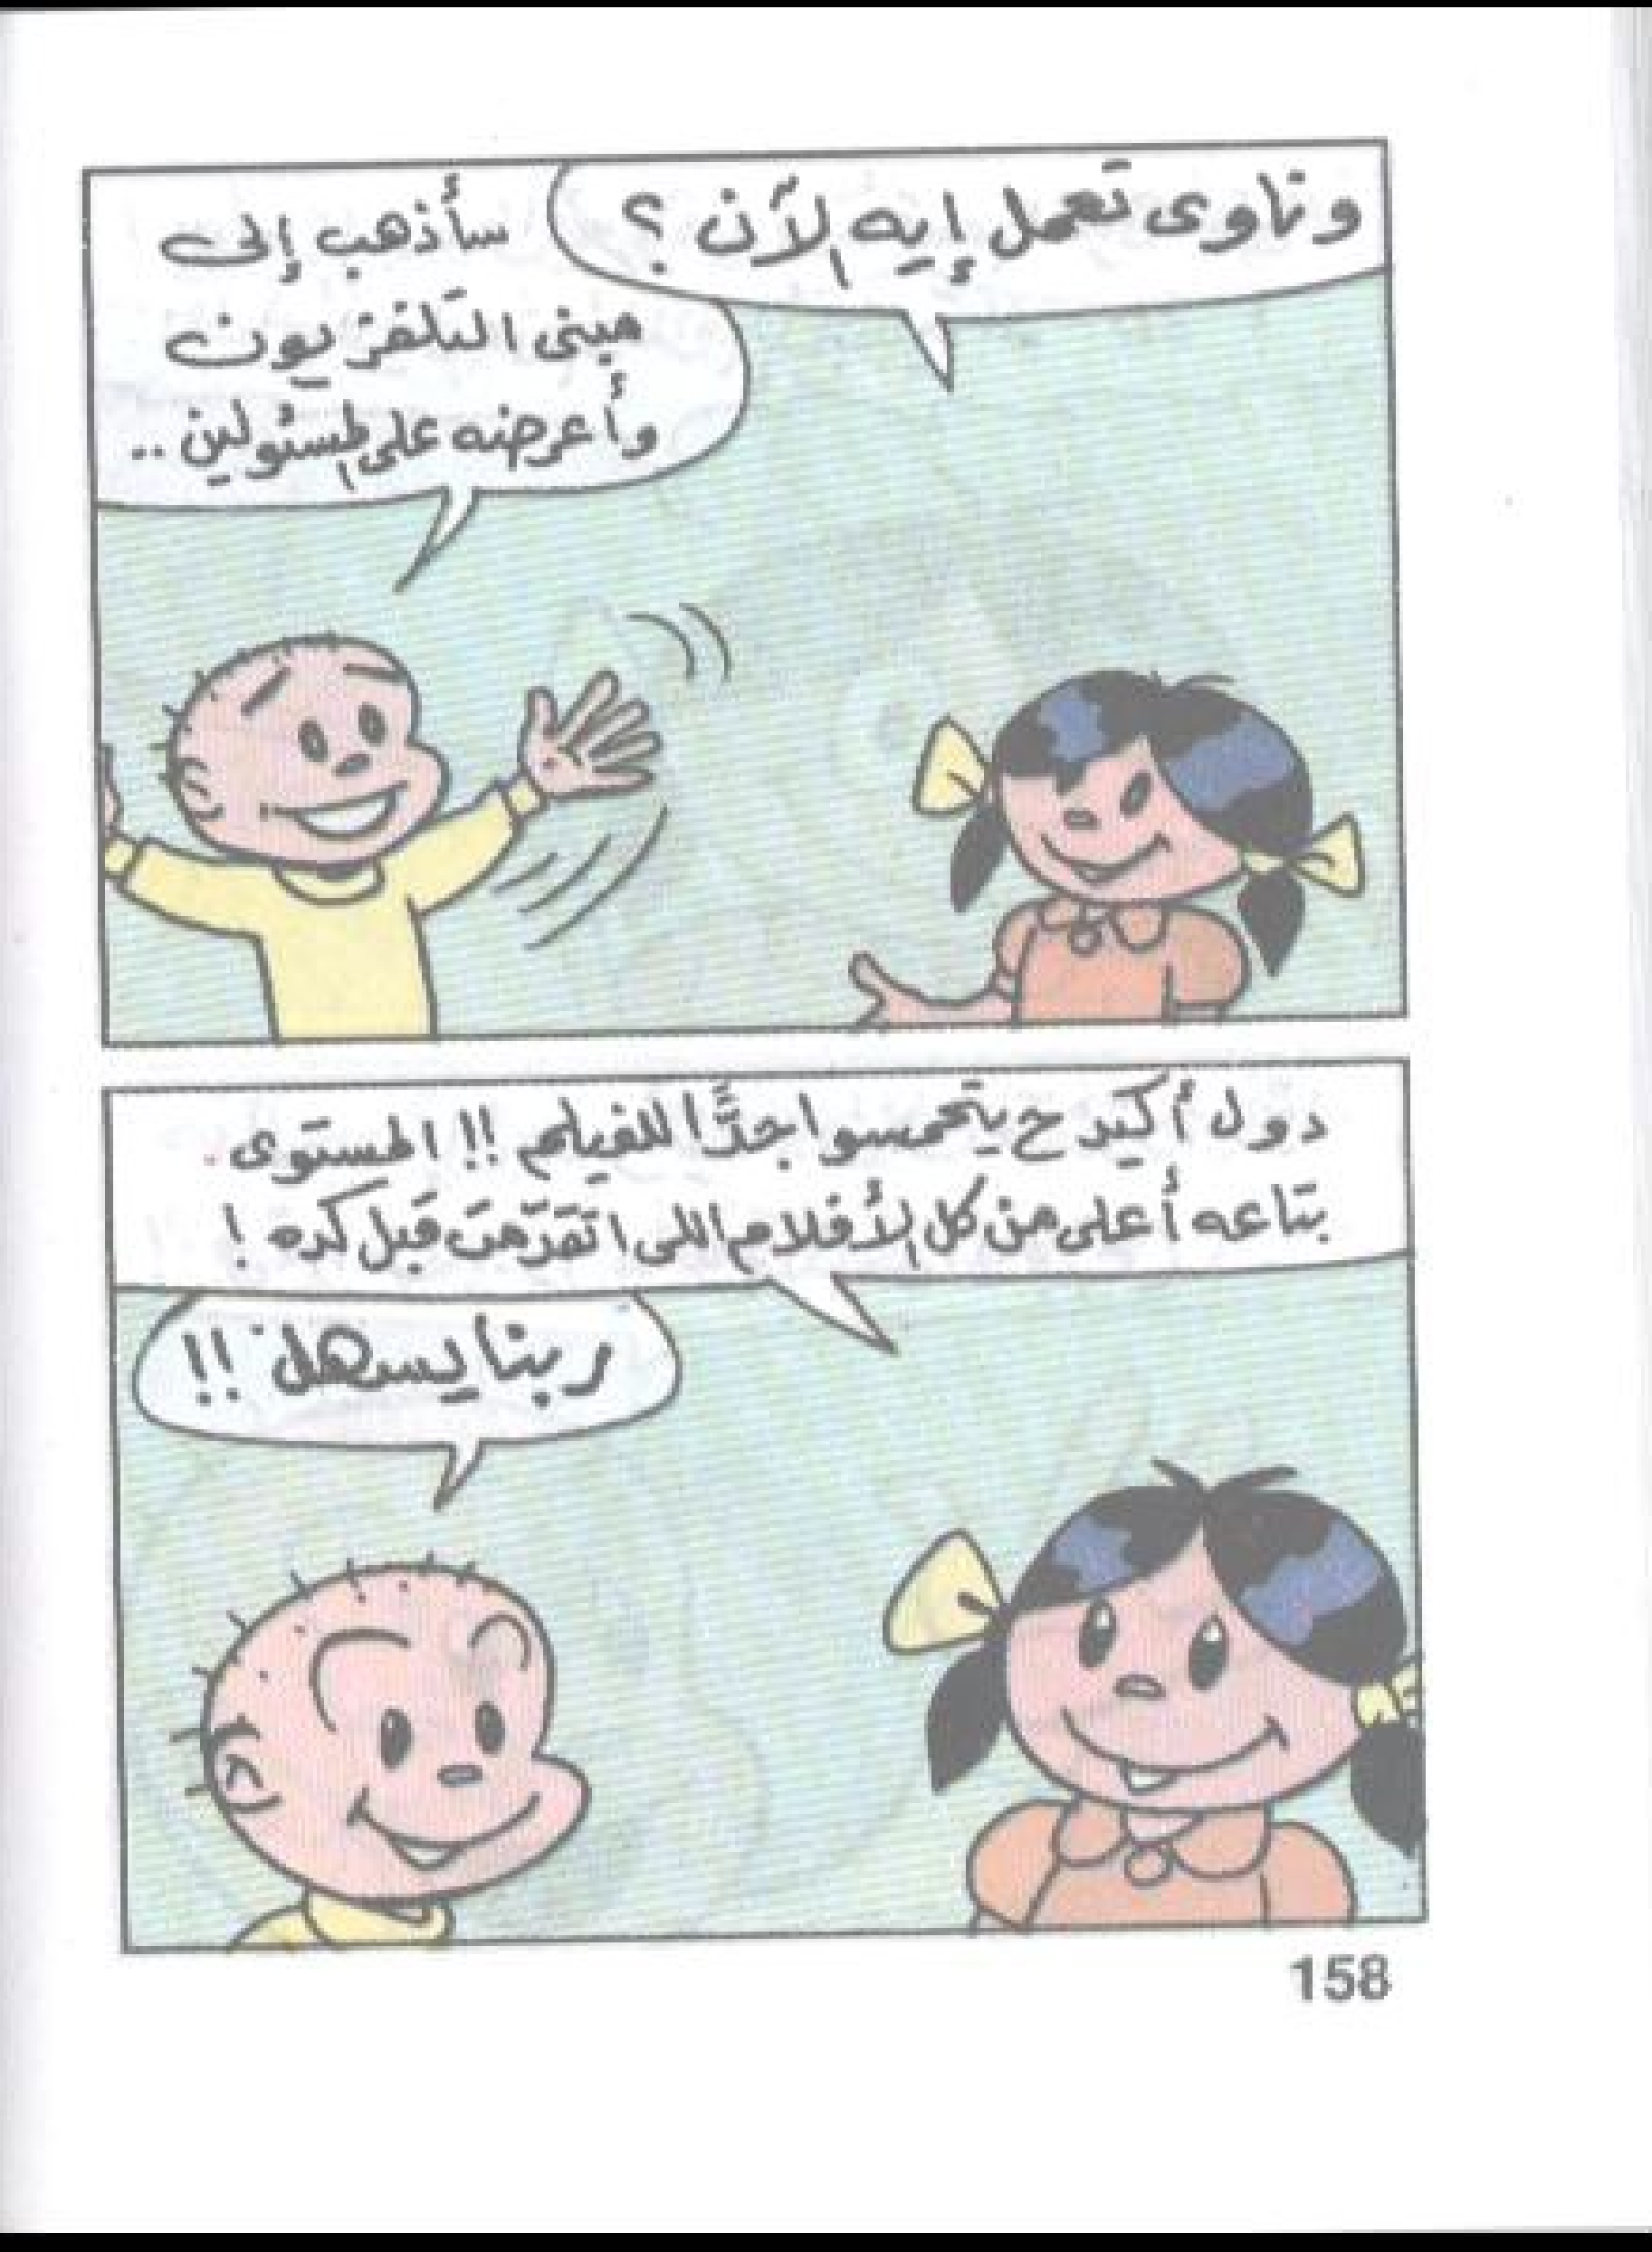 وناوى تعمل إيه الآن ؟
سأذهب إلى
مبنى التلفزيون
وأعرضه على المسئولين ..
دول أكيد ح يتحمسوا جدًّا للفيلم !! المستوى
بتاعه أعلى من كل الأفلام اللى اتقدّمت قبل كده !
ربنا يسهل !!
158